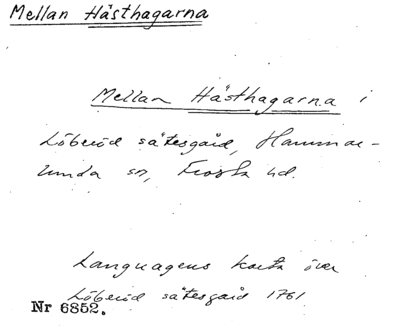 Mellan Hästhagarna
Mellan Hästhagarna i
Löberöd sätesgård, Hammar-
lunda sn, Frosta hd.
Languagens karta över
Löberöd sätesgård 1761
Nr 6852.